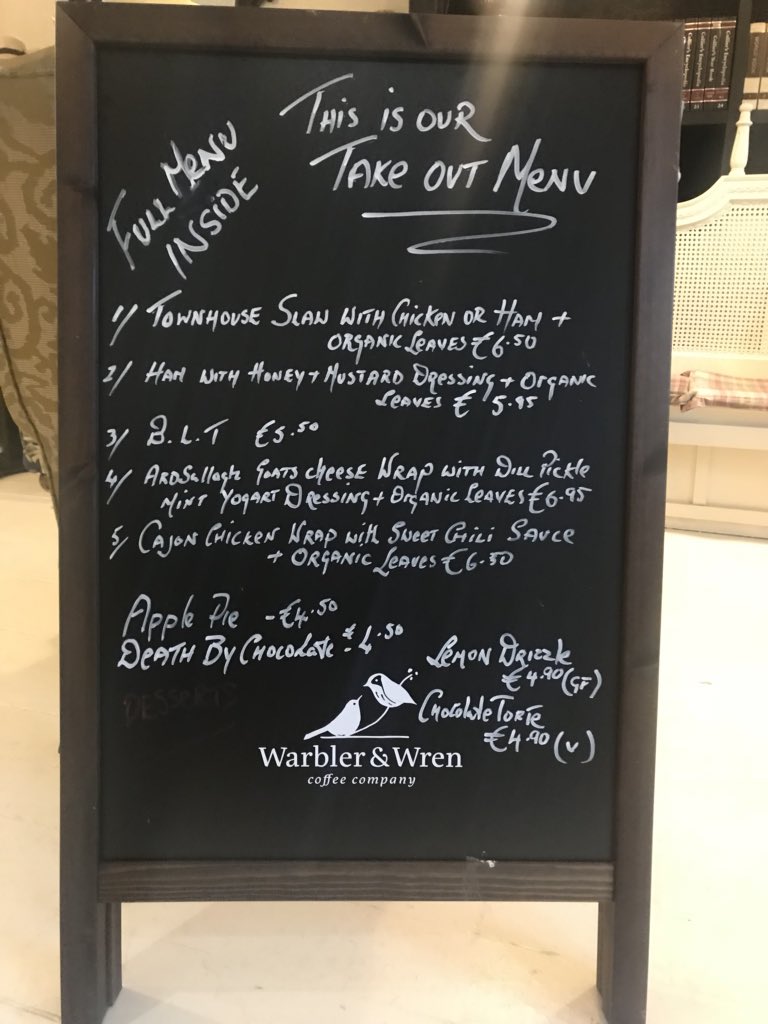 THIS IS OUR
TAKE OUT MENU
FULL MENU
INSIDE
1/ TOWNHOUSE SLAW WITH CHICKEN OR HAM +
ORGANIC LEAVES €6.50
2/ HAM WITH HONEY + MUSTARD DRESSING + ORGANIC
LEAVES € 5.95
3/ B.L.T €5.50
4/ ARDSALLAGH GOATS CHEESE WRAP WITH DILL PICKLE
MINT YOGART DRESSING + ORGANIC LEAVES €6.95
5/ CAJON CHICKEN WRAP WITH SWEET CHILI SAUCE
+ ORGANIC LEAVES €6.50
Apple Pie - €4.50
DEATH BY CHOCOLATE - €4.50
LEMON DRIZZLE
€4.90 (GF)
DESSERTS
CHOCOLATE TORTE
€4.90 (V)
Warbler & Wren
coffee company